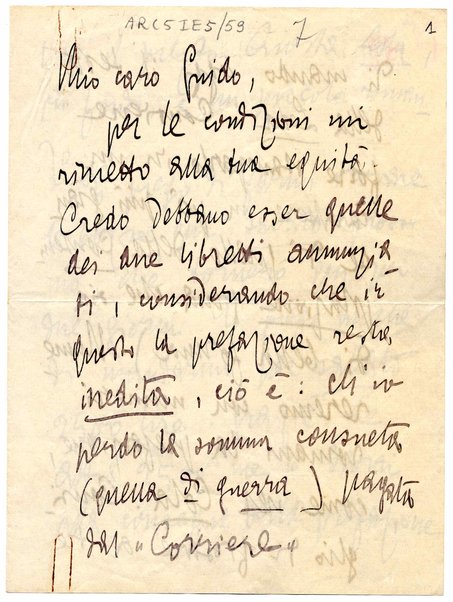 ARC5IE5/59 7 1
Mio caro Guido,
per le condizioni mi
rimetto alla tua equità.
Credo debbano esser quelle
dei due libretti annunzia
ti, considerando che in
questo la prefazione resta
inedita, ciò è: ch'io
perdo la somma consueta
(quella di guerra) pagata
dal "Corriere"